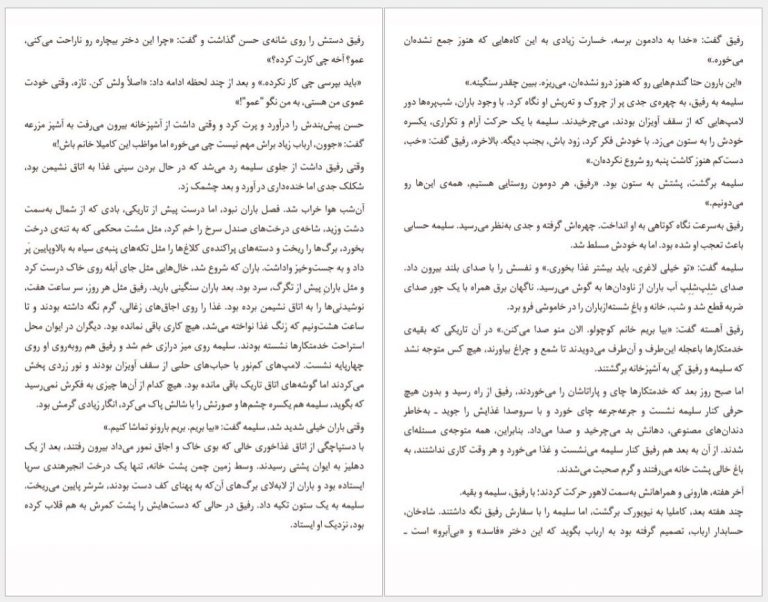 رفیق گفت: «خدا به دادمون برسه، خسارت زیادی به این کاه‌هایی که هنوز جمع نشده‌ان
می‌خوره.»
«این بارون حتا گندم‌هایی رو که هنوز درو نشده‌ان، می‌ریزه. ببین چقدر سنگینه.»
سلیمه به رفیق، به چهره‌ی جدی پر از چروک و ته‌ریش او نگاه کرد. با وجود باران، شب‌پره‌ها دور
لامپ‌هایی که از سقف آویزان بودند، می‌چرخیدند. سلیمه با یک حرکت آرام و تکراری، یکسره
خودش را به ستون می‌زد. با خودش فکر کرد، زود باش، بجنب دیگه. بالاخره، رفیق گفت: «خب،
دست‌کم هنوز کاشت پنبه رو شروع نکرده‌ان.»
سلیمه برگشت، پشتش به ستون بود. «رفیق، هر دومون روستایی هستیم، همه‌ی این‌ها رو
می‌دونیم.»
رفیق به‌سرعت نگاه کوتاهی به او انداخت. چهره‌اش گرفته و جدی به‌نظر می‌رسید. سلیمه حسابی
باعث تعجب او شده بود. اما به خودش مسلط شد.
سلیمه گفت: «تو خیلی لاغری، باید بیشتر غذا بخوری.» و نفسش را با صدای بلند بیرون داد.
صدای شلِپ‌شلِپ آب باران از ناودان‌ها به گوش می‌رسید. ناگهان برق همراه با یک جور صدای
ضربه قطع شد و شب، خانه و باغِ شسته‌ازباران را در خاموشی فرو برد.
رفیق آهسته گفت: «بیا بریم خانم کوچولو. الان منو صدا می‌کنن.» در آن تاریکی که بقیه‌ی
خدمتکارها باعجله این‌طرف و آن‌طرف می‌دویدند تا شمع و چراغ بیاورند، هیچ کس متوجه نشد
که سلیمه و رفیق کِی به آشپزخانه برگشتند.
اما صبح روز بعد که خدمتکارها چای و پاراتاشان را می‌خوردند، رفیق از راه رسید و بدون هیچ
حرفی کنار سلیمه نشست و جرعه‌جرعه چای خورد و با سروصدا غذایش را جوید ـ به‌خاطر
دندان‌های مصنوعی، دهانش بد می‌چرخید و صدا می‌داد. بنابراین، همه متوجه‌ی مسئله‌ای
شدند. از آن به بعد هم رفیق کنار سلیمه می‌نشست و غذا می‌خورد و هر وقت کاری نداشتند، به
باغ خالی پشت خانه می‌رفتند و گرم صحبت می‌شدند.
آخر هفته، هارونی و همراهانش به‌سمت لاهور حرکت کردند؛ با رفیق، سلیمه و بقیه.
چند هفته بعد، کاملیا به نیویورک برگشت، اما سلیمه را با سفارش رفیق نگه داشتند. شاه‌خان،
حسابدار ارباب، تصمیم گرفته بود به ارباب بگوید که این دختر «فاسد» و «بی‌آبرو» است ـ
رفیق دستش را روی شانه‌ی حسن گذاشت و گفت: «چرا این دختر بیچاره رو ناراحت می‌کنی،
عمو؟ آخه چی کارت کرده؟»
«باید بپرسی چی کار نکرده.» و بعد از چند لحظه ادامه داد: «اصلاً ولش کن. تازه، وقتی خودت
عموی من هستی، به من نگو "عمو"!»
حسن پیش‌بندش را درآورد و پرت کرد و وقتی داشت از آشپزخانه بیرون می‌رفت به آشپز مزرعه
گفت: «جوون، ارباب زیاد براش مهم نیست چی می‌خوره اما مواظب این کامیلا خانم باش!»
وقتی رفیق داشت از جلوی سلیمه رد می‌شد که در حال بردن سینی غذا به اتاق نشیمن بود،
شکلک جدی اما خنده‌داری در آورد و بعد چشمک زد.
آن‌شب هوا خراب شد. فصل باران نبود، اما درست پیش از تاریکی، بادی که از شمال به‌سمت
دشت وزید، شاخه‌ی درخت‌های صندل سرخ را خم کرد، مثل مشت محکمی که به تنه‌ی درخت
بخورد، برگ‌ها را ریخت و دسته‌های پراکنده‌ی کلاغ‌ها را مثل تکه‌های پنبه‌ی سیاه به بالاوپایین پَر
داد و به جست‌وخیز واداشت. باران که شروع شد، خال‌هایی مثل جای آبله روی خاک درست کرد
و مثل بارانِ پیش از تگرگ، سرد بود. بعد باران سنگینی بارید. رفیق مثل هر روز، سر ساعت هفت،
نوشیدنی‌ها را به اتاق نشیمن برده بود. غذا را روی اجاق‌های زغالی، گرم نگه داشته بودند و تا
ساعت هشت‌ونیم که زنگ غذا نواخته می‌شد، هیچ کاری باقی نمانده بود. دیگران در ایوان محل
استراحت خدمتکارها نشسته بودند. سلیمه روی میز درازی خم شد و رفیق هم روبه‌روی او روی
چهارپایه نشست. لامپ‌های کم‌نور با حباب‌های حلبی از سقف آویزان بودند و نور زردی پخش
می‌کردند اما گوشه‌های اتاق تاریک باقی مانده بود. هیچ کدام از آن‌ها چیزی به فکرش نمی‌رسید
که بگوید، سلیمه هم یکسره چشم‌ها و صورتش را با شالش پاک می‌کرد، انگار زیادی گرمش بود.
وقتی باران خیلی شدید شد، سلیمه گفت: «بیا بریم. بریم بارونو تماشا کنیم.»
با دستپاچگی از اتاق غذاخوری خالی که بوی خاک و اجاق نمور می‌داد بیرون رفتند، بعد از یک
دهلیز به ایوان پشتی رسیدند. وسط زمین چمن پشت خانه، تنها یک درخت انجیرهندی سرپا
ایستاده بود و باران از لابه‌لای برگ‌های آن‌که به پهنای کف دست بودند، شرشر پایین می‌ریخت.
سلیمه به یک ستون تکیه داد. رفیق در حالی که دست‌هایش را پشت کمرش به هم قلاب کرده
بود، نزدیک او ایستاد.